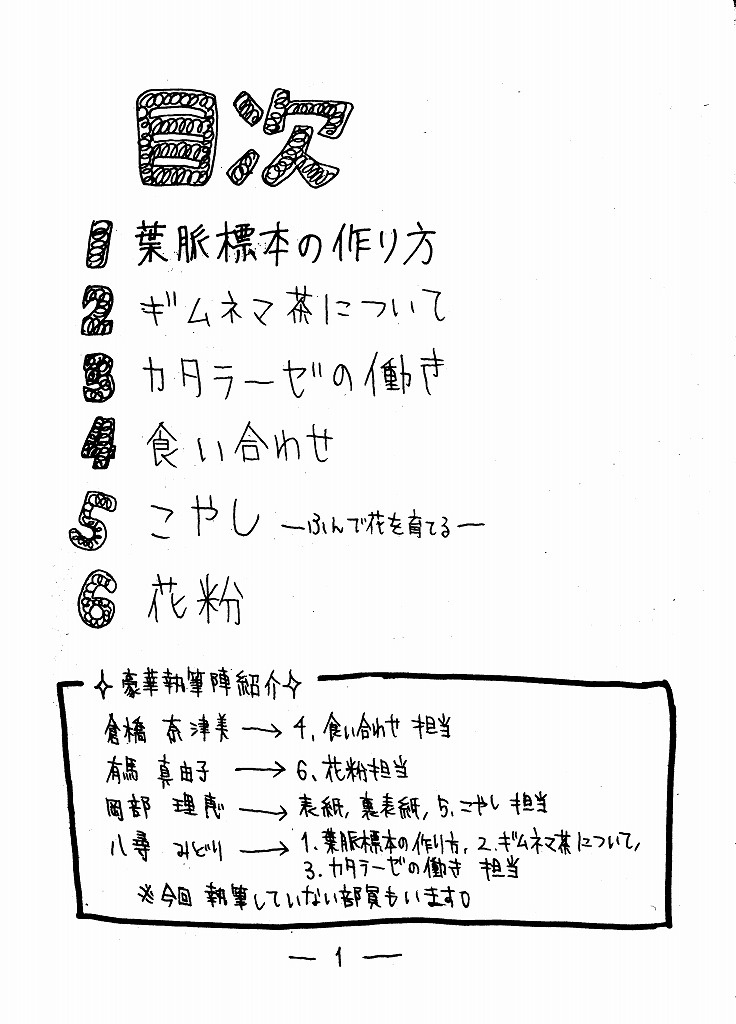 目次
1 葉脈標本の作り方
2 ギムネマ茶について
3 カタラーゼの働き
4 食い合わせ
5 こやし ―ふんで花を育てる―
6 花粉
✧豪華執筆陣紹介✧
倉橋 奈津美 → 4. 食い合わせ 担当
有馬 真由子 → 6. 花粉担当
岡部 理恵 → 表紙, 裏表紙, 5. こやし 担当
八尋 みどり → 1. 葉脈標本の作り方, 2. ギムネマ茶について,
3. カタラーゼの働き 担当
※今回 執筆していない部員もいます。
― 1 ―